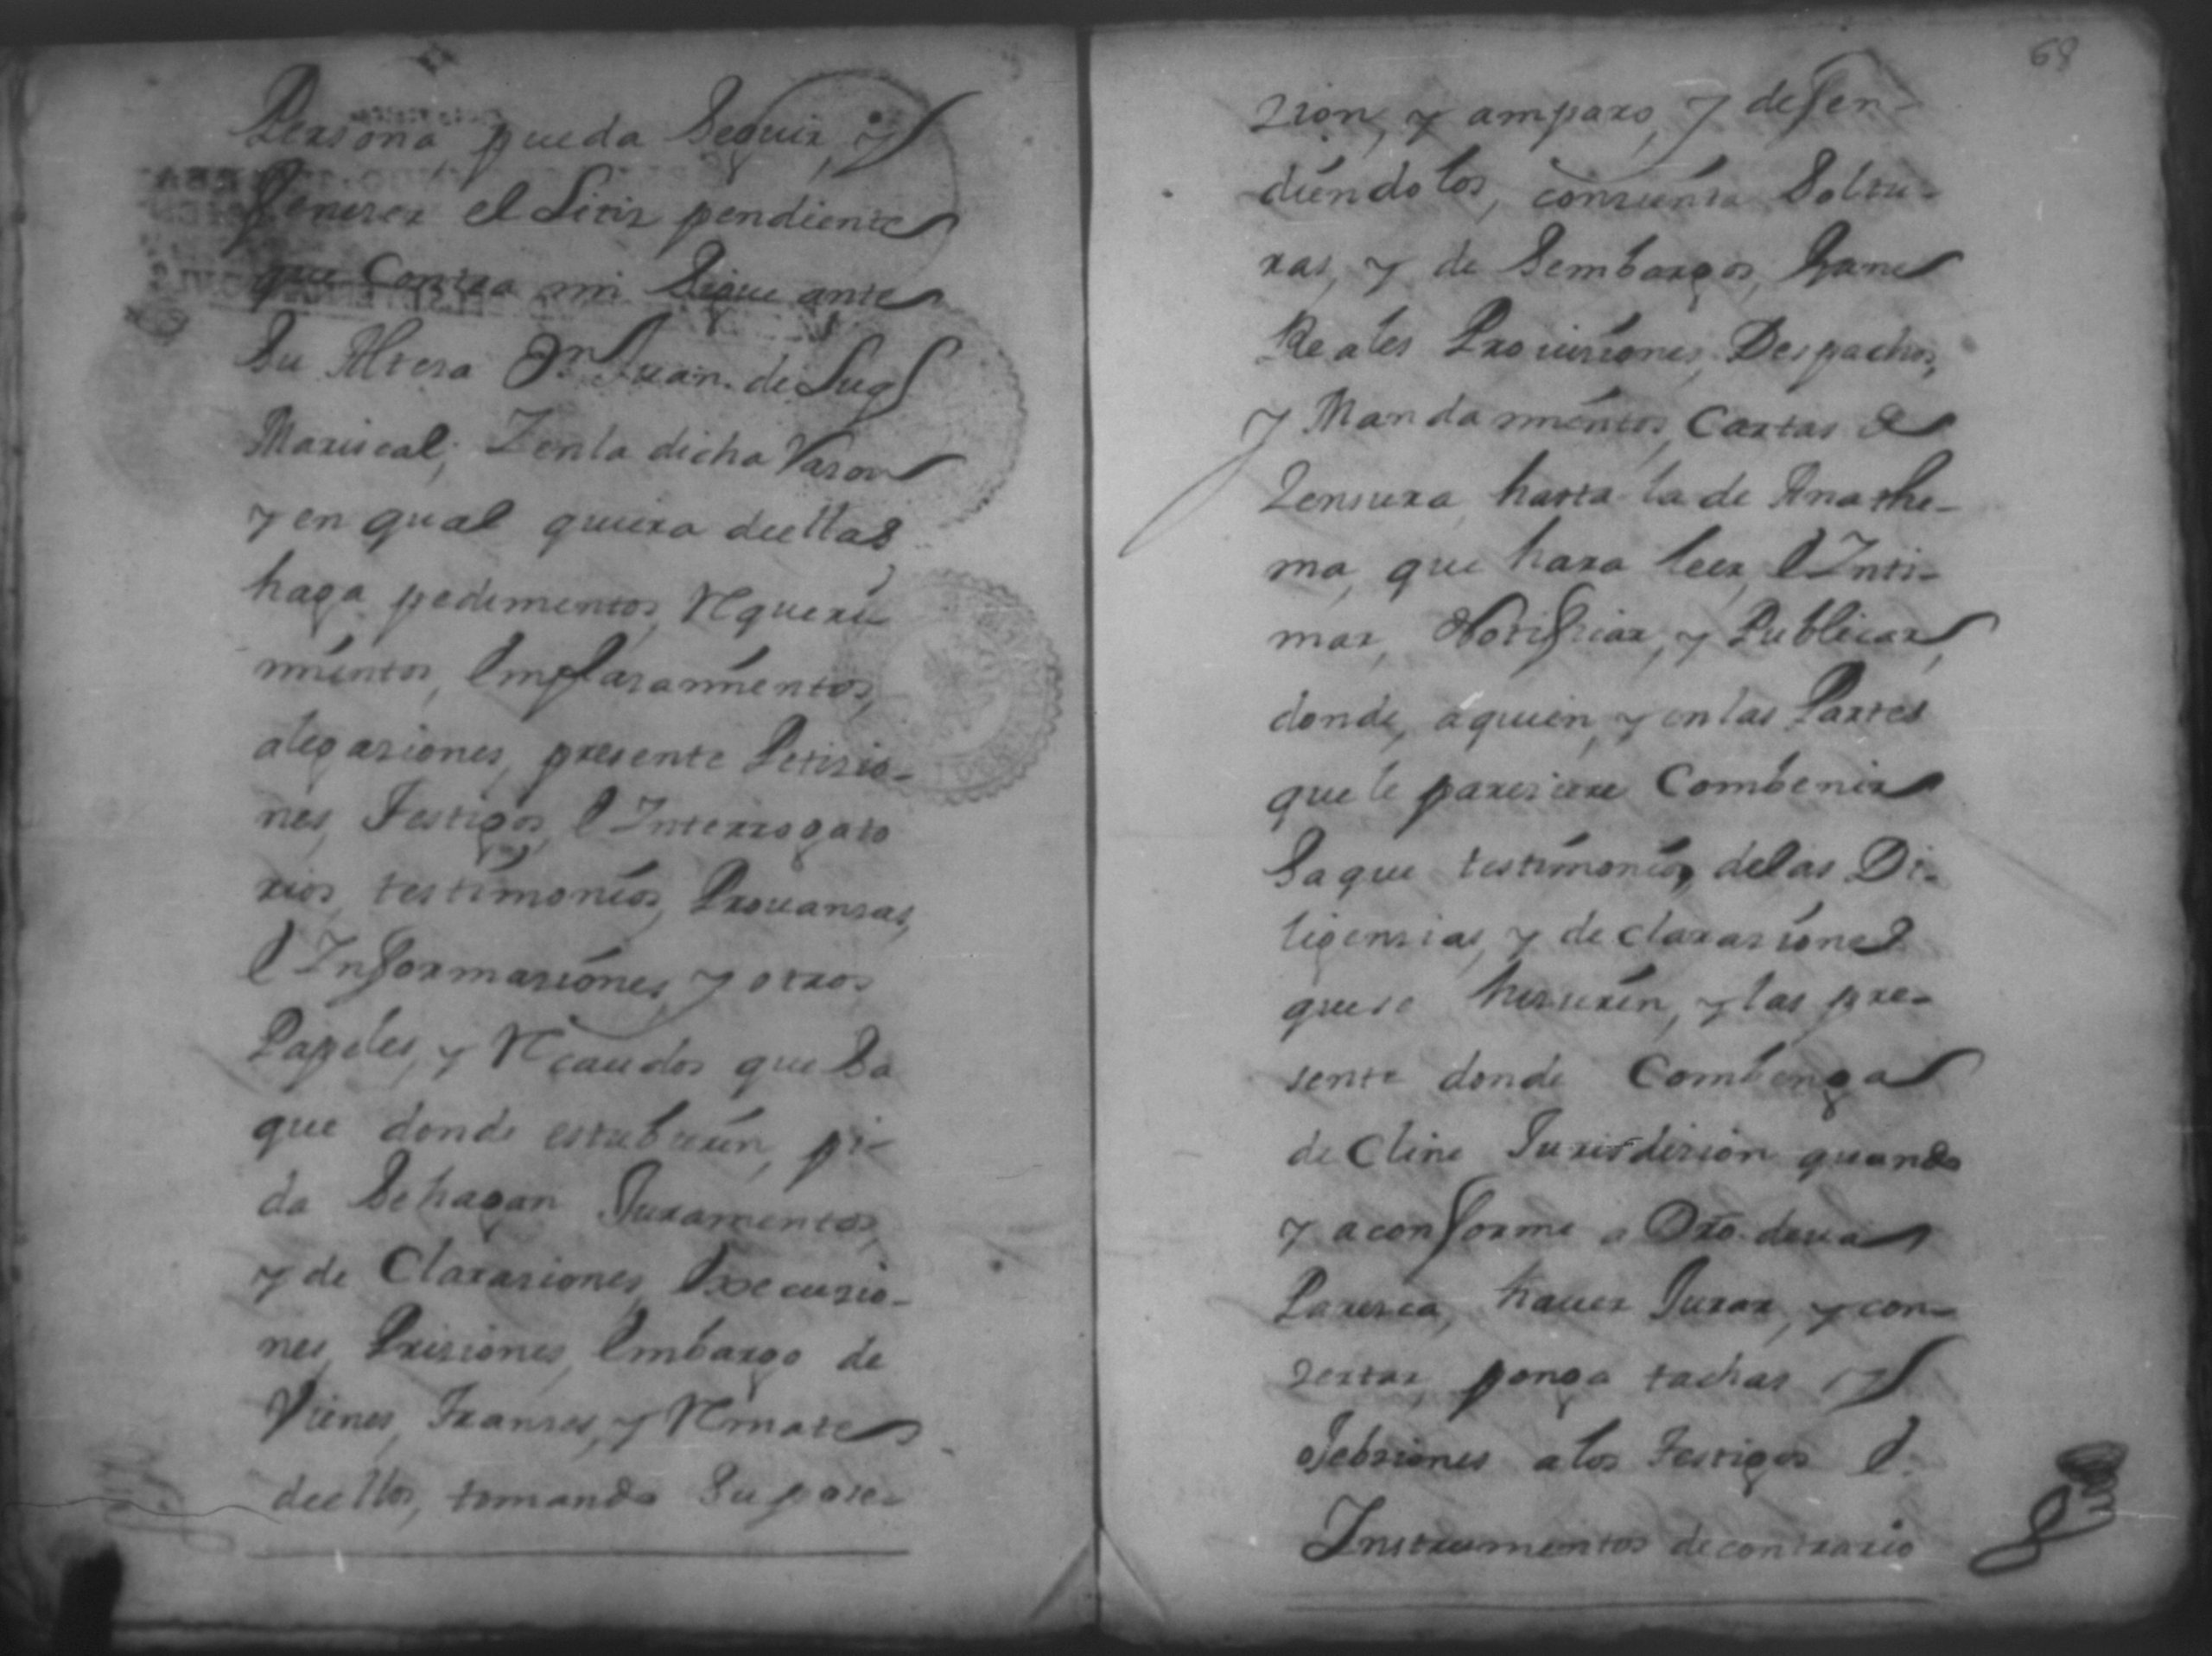 Persona pueda Seguir, y
feneser el Litis pendiente
que Contra mi Sigue ante
Su Altesa Dn Juan de Lugo
Mariscal; Zenla dicha Rason
y en qual quiera deellas
haga pedimentos, Requeri
mientos, Emplasamientos,
alegasiones, presente Petisio-
nes, Testigos, E Interrogato
rios, testimonios, Provansas,
E Informasiones, y otros
Papeles, y Recaudos que Sa
que donde estubieren, pi-
da Sehagan Juramentos,
y de Clarasiones, Execusio-
nes, Prisiones, Embargo de
Vienes, Transes, y Remate
deellos, tomando Su pose-
68
zion, y amparo, y defen-
diendolos, consienta Soltu-
ras, y de Sembargos, Gane
Reales Provisiones, Despachos,
y Mandamientos, Cartas de
Zensura hasta la de Anathe-
ma, que hara leer, E Inti-
mar, Notifficar, y Publicar,
donde, aquien, y enlas Partes
que le paresiere Combenir
Saque testimonios delas Di-
ligensias, y de clarasiones
quese hisieren, y las pre-
sente donde Combenga
de Cline Jurisdision quando
y aconforme a Dro. deva
Paresca, haver Jurar, y con-
testar, ponga tachas, y
objebsiones alos testigos E
Instrumentos decontrario